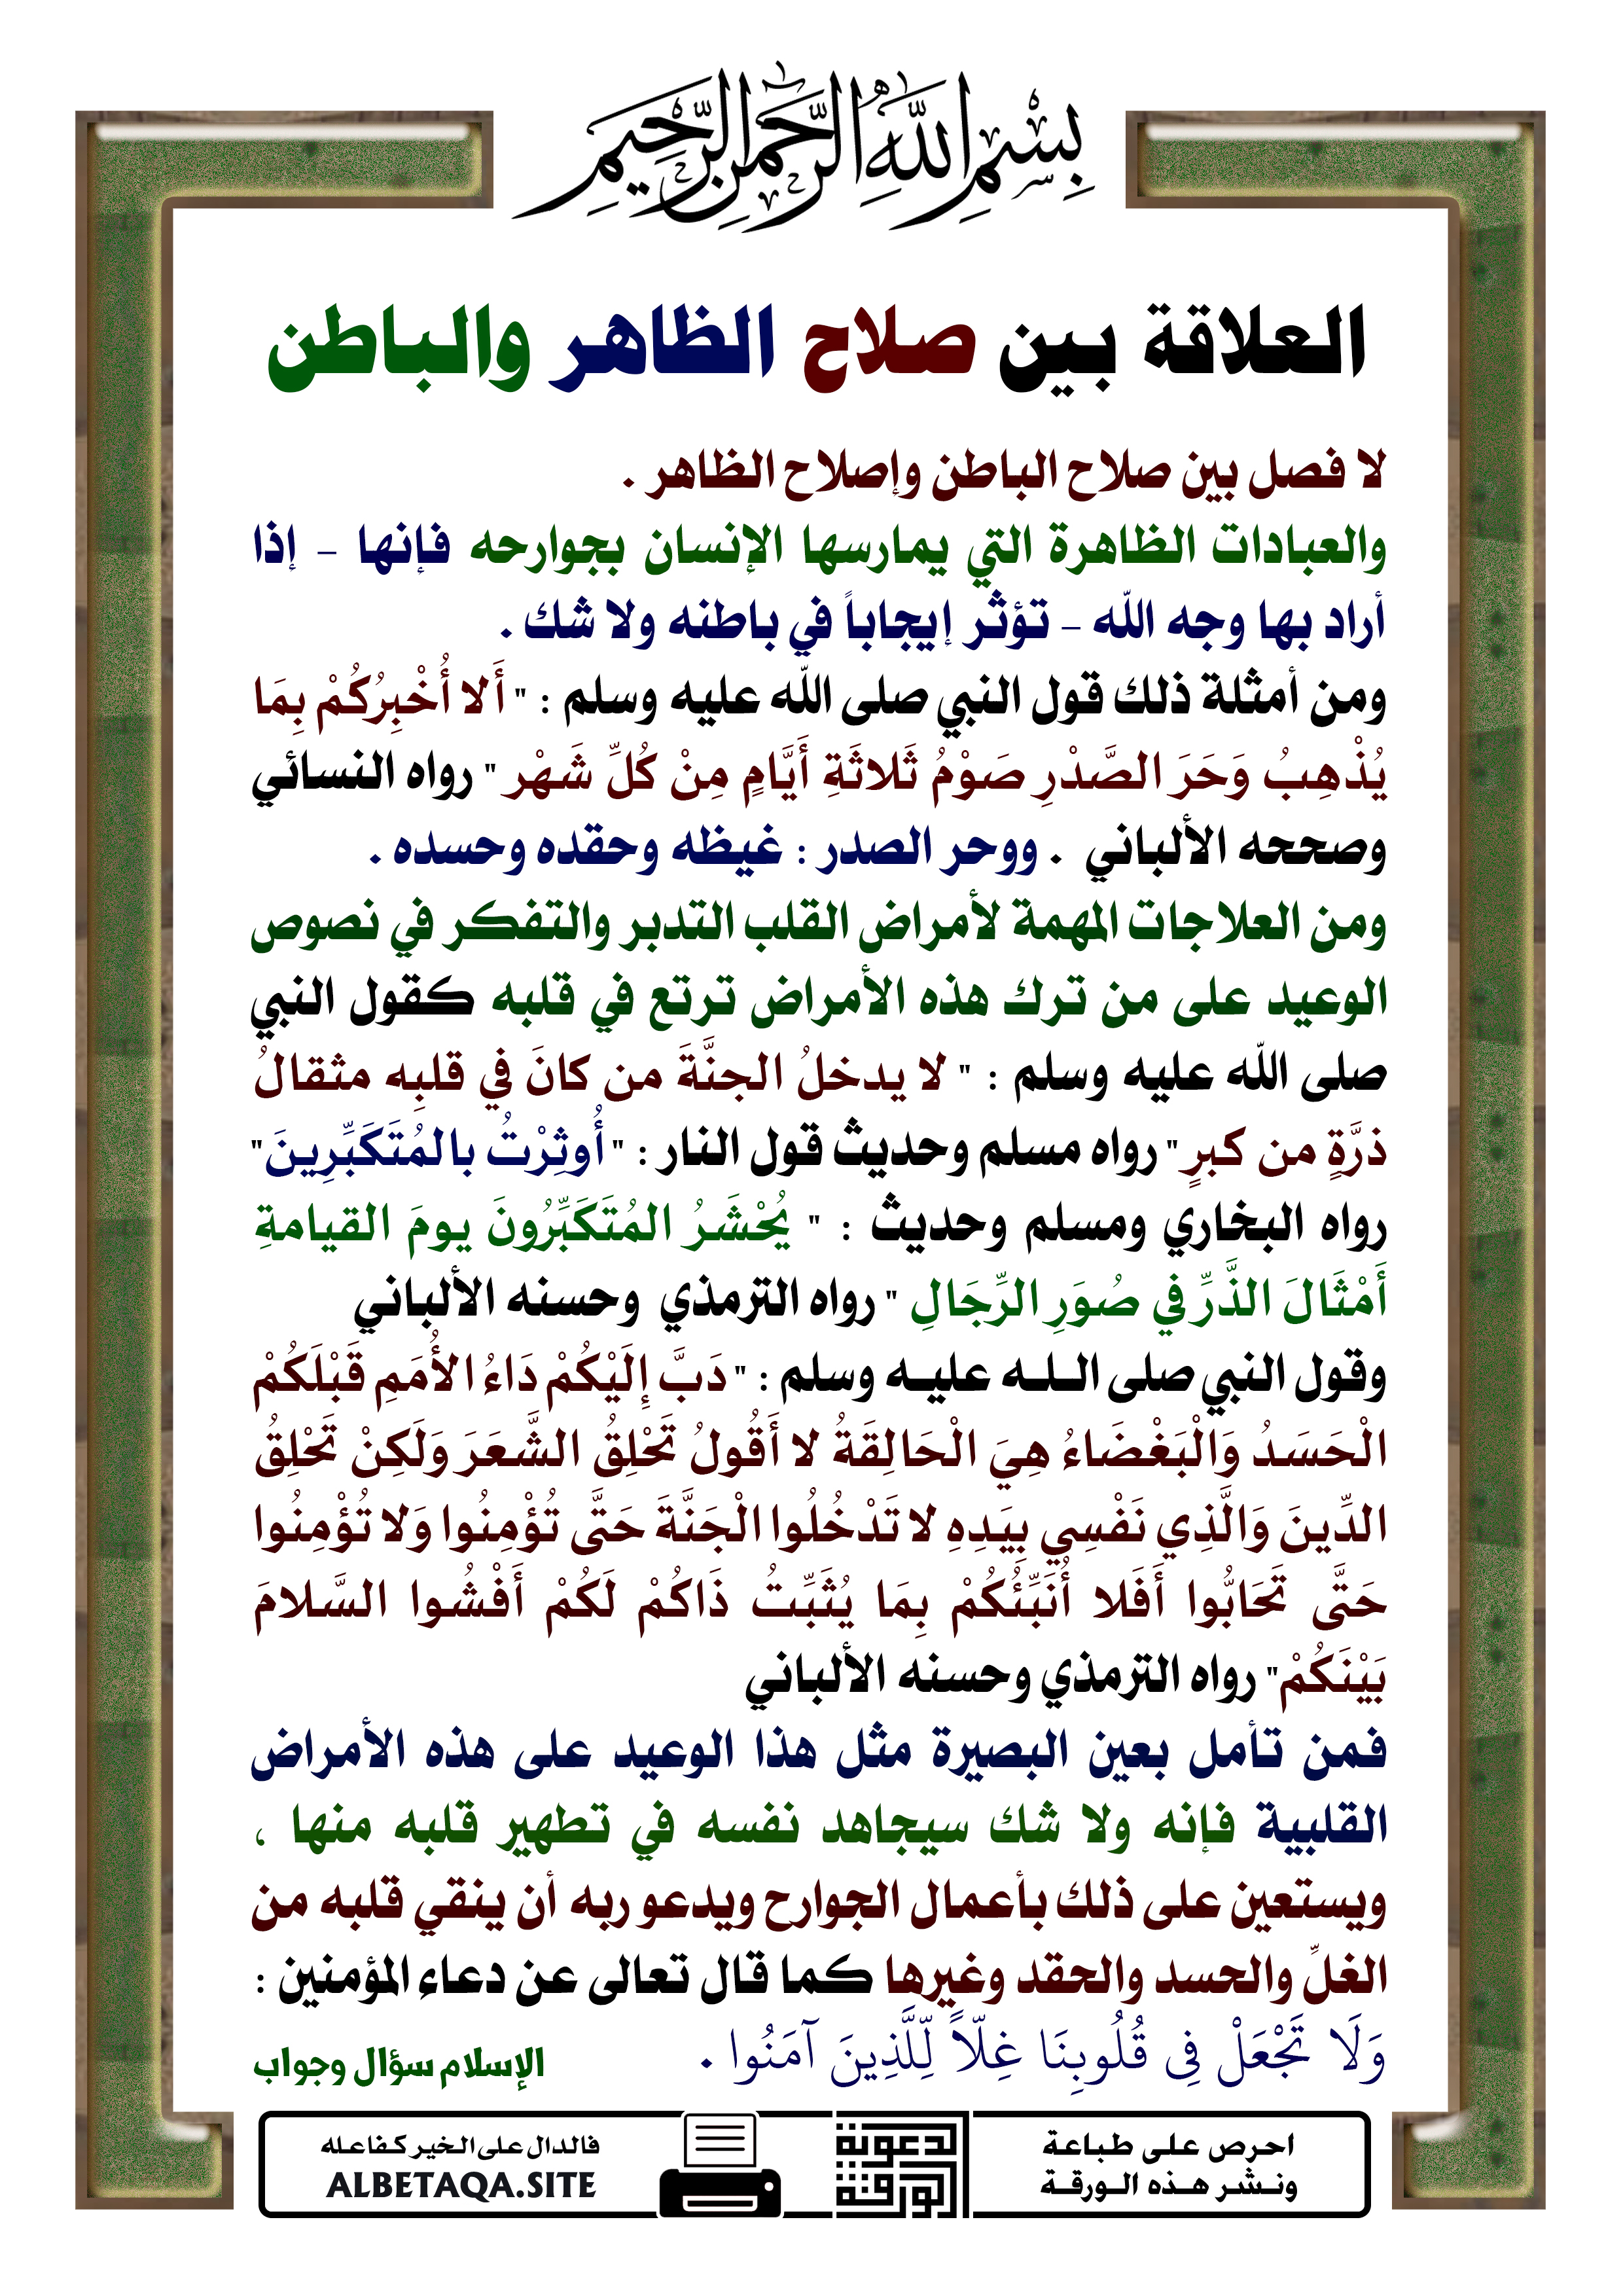 بسم الله الرحمن الرحيم
العلاقة بين صلاح الظاهر والباطن
لا فصل بين صلاح الباطن وإصلاح الظاهر .
والعبادات الظاهرة التي يمارسها الإنسان بجوارحه فإنها – إذا
أراد بها وجه الله – تؤثر إيجاباً في باطنه ولا شك .
ومن أمثلة ذلك قول النبي صلى الله عليه وسلم : " أَلا أُخْبِرُكُمْ بِمَا
يُذْهِبُ وَحَرَ الصَّدْرِ صَوْمُ ثَلاثَةِ أَيَّامٍ مِنْ كُلِّ شَهْر " رواه النسائي
وصححه الألباني . ووحر الصدر : غيظه وحقده وحسده .
ومن العلاجات المهمة لأمراض القلب التدبر والتفكر في نصوص
الوعيد على من ترك هذه الأمراض ترتع في قلبه كقول النبي
صلى الله عليه وسلم : " لا يدخلُ الجنَّةَ من كانَ في قلبِه مثقالُ
ذرَّةٍ من كبرٍ" رواه مسلم وحديث قول النار : " أُوثِرْتُ بالمُتَكَبِّرِينَ"
رواه البخاري ومسلم وحديث : " يُحْشَرُ المُتَكَبِّرُونَ يومَ القيامةِ
أَمْثَالَ الذَّرِّ في صُوَرِ الرِّجَالِ " رواه الترمذي وحسنه الألباني
وقول النبي صلى الـلـه عليـه وسلم : " دَبَّ إِلَيْكُمْ دَاءُ الأُمَمِ قَبْلَكُمْ
الْحَسَدُ وَالْبَغْضَاءُ هِيَ الْحَالِقَةُ لا أَقُولُ تَحْلِقُ الشَّعَرَ وَلَكِنْ تَحْلِقُ
الدِّينَ وَالَّذِي نَفْسِي بِيَدِهِ لا تَدْخُلُوا الْجَنَّةَ حَتَّى تُؤْمِنُوا وَلا تُؤْمِنُوا
حَتَّى تَحَابُّوا أَفَلا أُنَبِّئُكُمْ بِمَا يُثَبِّتُ ذَاكُمْ لَكُمْ أَفْشُوا السَّلامَ
بَيْنَكُمْ" رواه الترمذي وحسنه الألباني
فمن تأمل بعين البصيرة مثل هذا الوعيد على هذه الأمراض
القلبية فإنه ولا شك سيجاهد نفسه في تطهير قلبه منها ،
ويستعين على ذلك بأعمال الجوارح ويدعو ربه أن ينقي قلبه من
الغلِّ والحسد والحقد وغيرها كما قال تعالى عن دعاء المؤمنين :
وَلَا تَجْعَلْ فِى قُلُوبِنَا غِلّاً لِّلَّذِينَ آمَنُوا .
الإسلام سؤال وجواب
احرص على طباعة
ونـشـر هـذه الـورقـة
الورقة
الدعوية
فالدال على الخير كفاعله
ALBETAQA.SITE